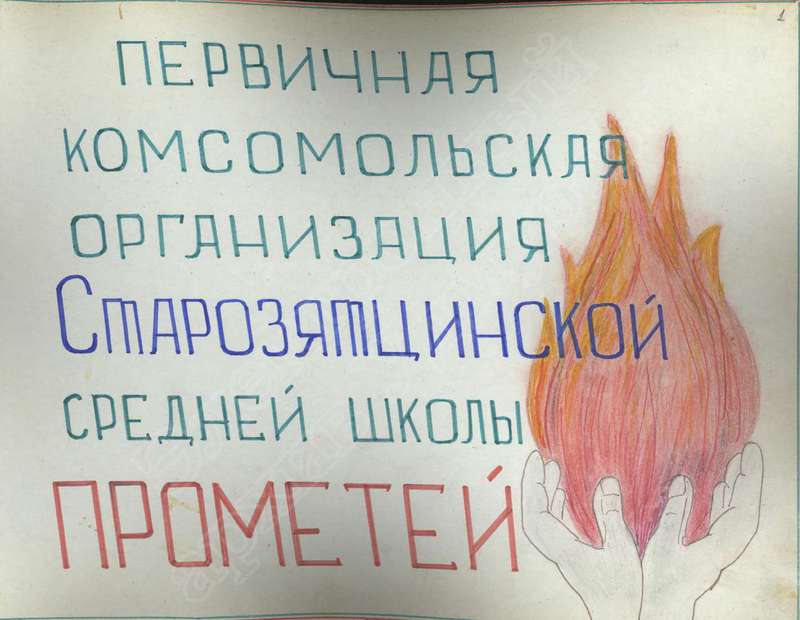 1
ПЕРВИЧНАЯ
КОМСОМОЛЬСКАЯ
ОРГАНИЗАЦИЯ
СТАРОЗЯТЦИНСКОЙ
СРЕДНЕЙ ШКОЛЫ
ПРОМЕТЕЙ